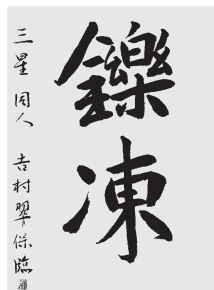 鑠凍
三星 同人 吉村翠保臨